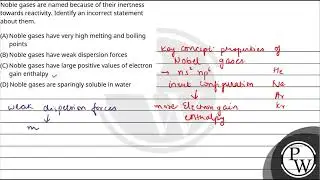 Noble gases are named because of their inertness
towards reactivity. Identify an incorrect statement
about them.
(A) Noble gases have very high melting and boiling
points
(B) Noble gases have weak dispersion forces
(C) Noble gases have large positive values of electron
gain enthalpy
(D) Noble gases are sparingly soluble in water
weak dispersion forces
m
Key concept: properties of
Nobel gases
→ ns² np⁶
inert configuration
more Electron gain
enthalpy
He
Ne
Ar
Kr
PW